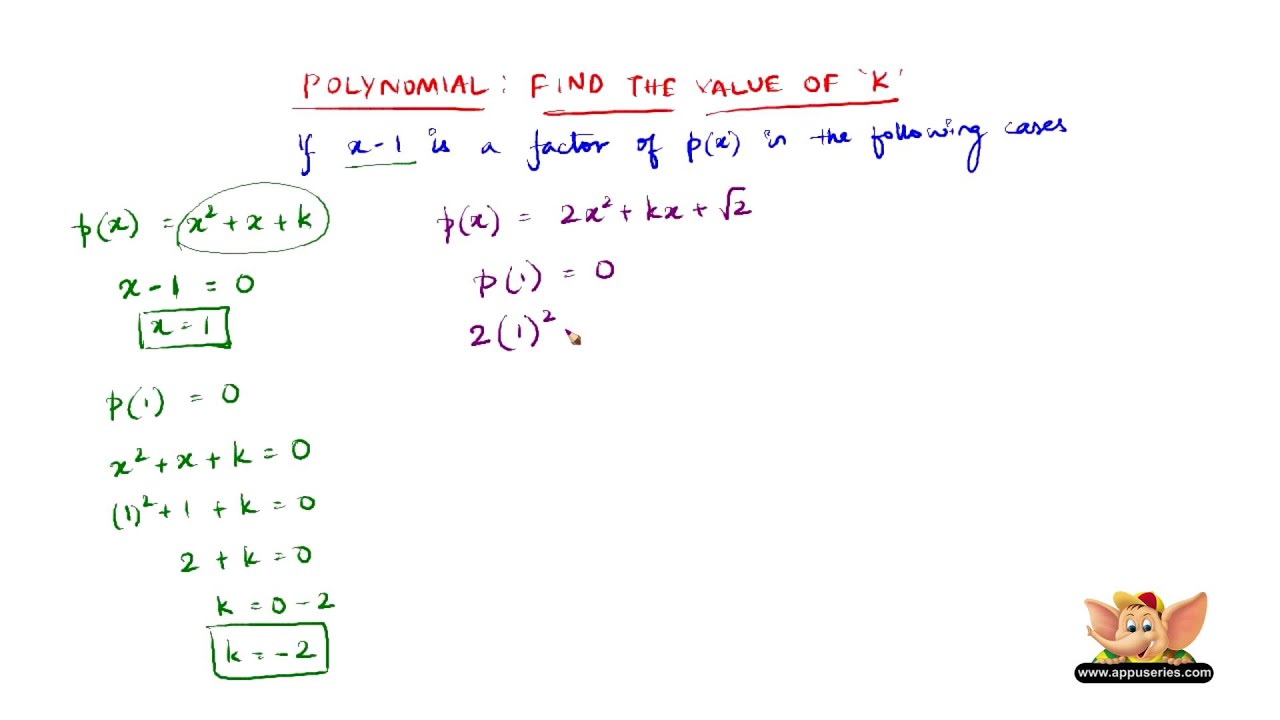 POLYNOMIAL : FIND THE VALUE OF 'K'
If x-1 is a factor of p(x) in the following cases
p(x) = x² + x + k
x - 1 = 0
x = 1
p(1) = 0
x² + x + k = 0
(1)² + 1 + k = 0
2 + k = 0
k = 0 - 2
k = -2
p(x) = 2x² + kx + √2
p(1) = 0
2(1)²
www.appuseries.com